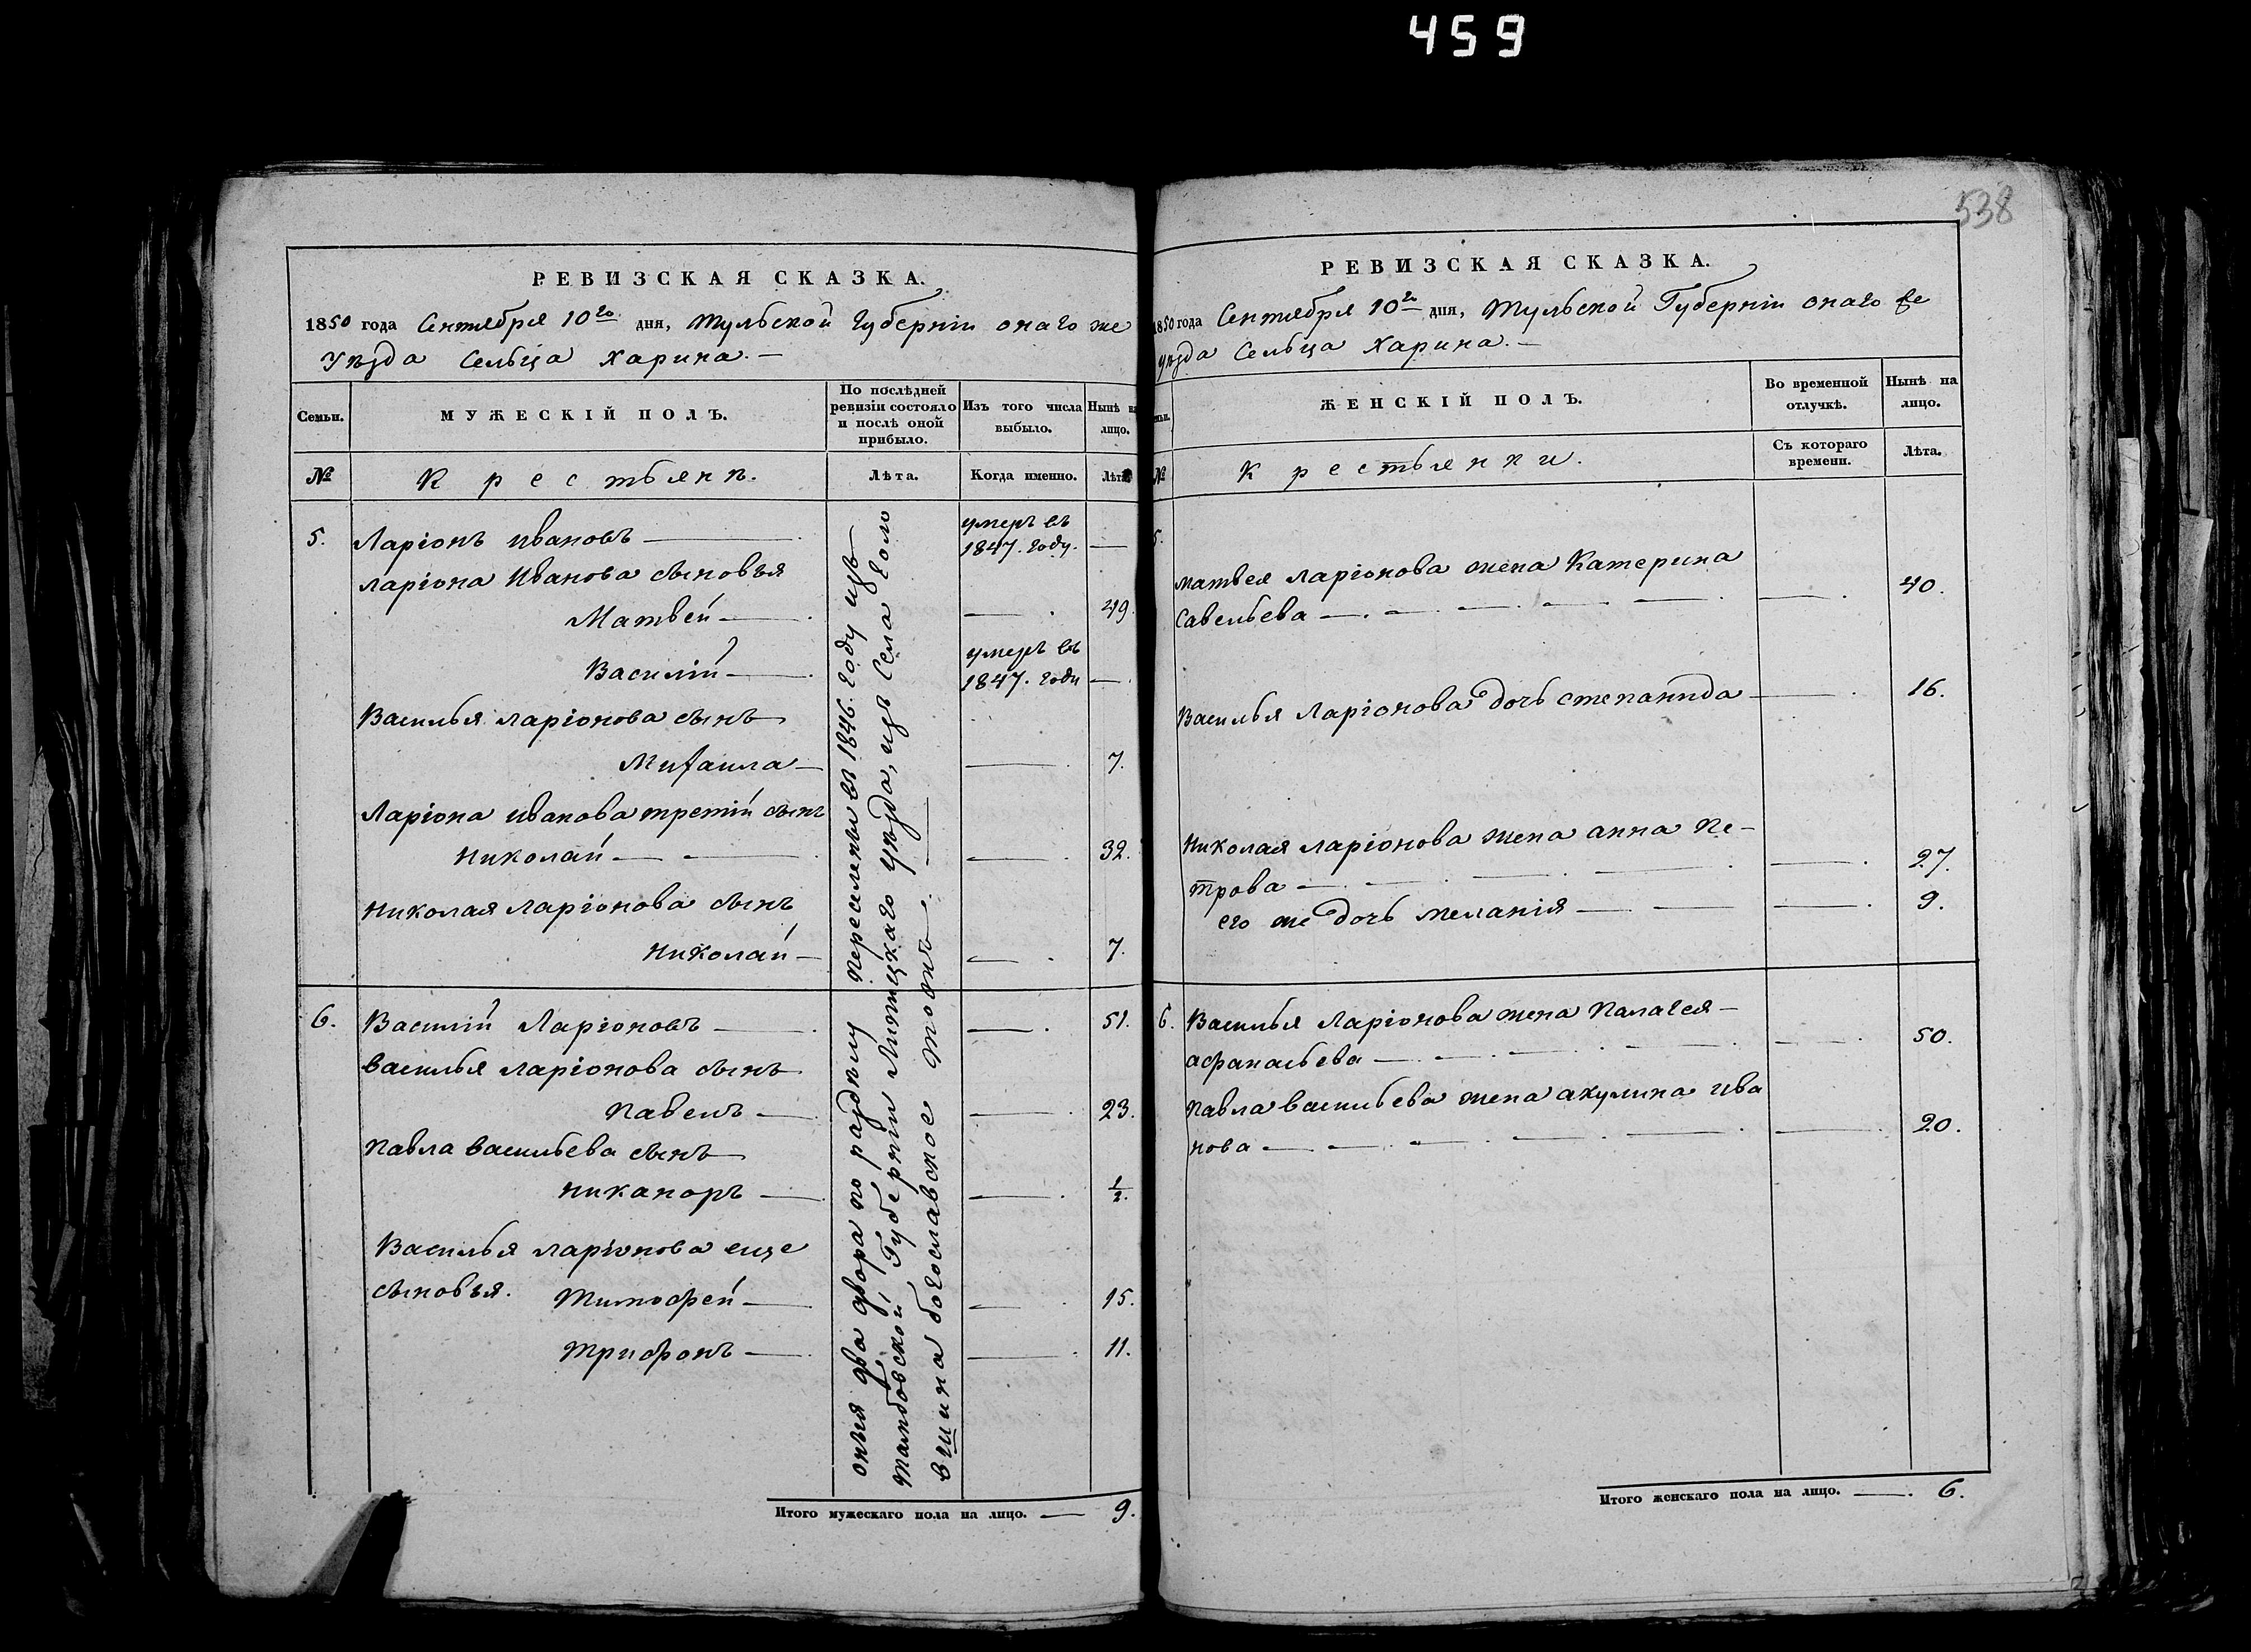 459
538
РЕВИЗСКАЯ СКАЗКА.
1850 года Сентября 10го дня, Тульской Губерніи онаго же
Уѣзда Сельца Харина. —
Семьи.
МУЖЕСКІЙ ПОЛЪ.
По послѣдней
ревизіи состояло
и послѣ оной
прибыло.
Изъ того числа
выбыло.
Нынѣ на
лицо.
№
Крестьянъ.
Лѣта.
Когда именно.
Лѣта
5. Ларіонъ Ивановъ — умеръ въ
1847. году. —
Ларіона Иванова сыновья
Матвей — — 49
Василій — умеръ въ
1847. году —
Василья Ларіонова сынъ
Михаила — — 7.
Ларіона Иванова третій сынъ
Николай — — — 32.
Николая Ларіонова сынъ
Николай — — 7.
6. Василій Ларіоновъ — — 51.
Василья Ларіонова сынъ
Павелъ — — 23.
Павла Васильева сынъ
Никаноръ — — 1/2.
Василья Ларіонова еще
сыновья. Тимофей — — 15.
Трифонъ — — 11.
оныя два двора по раздѣлу переселены въ 1846. году изъ
Тамбовской Губерніи Липицкаго Уѣзда, изъ Села Голо
вшина богославское тожъ. —
Итого мужескаго пола на лицо. — 9.
РЕВИЗСКАЯ СКАЗКА.
1850 года Сентября 10го дня, Тульской Губерніи онаго же
уѣзда Сельца Харина. —
ЖЕНСКІЙ ПОЛЪ.
Во временной
отлучкѣ.
Нынѣ на
лицо.
№
Крестьянки.
Съ котораго
времени.
Лѣта.
5.
Матвея Ларіонова жена Катерина
Савельева — — 40.
Василья Ларіонова дочь степанида — — 16.
Николая Ларіонова жена анна Пе-
трова — — 27.
его же дочь меланія — — 9.
6. Василья Ларіонова жена Палагея —
афанасьева — — 50.
Павла васильева жена акулина ива
нова — — 20.
Итого женскаго пола на лицо. — 6.